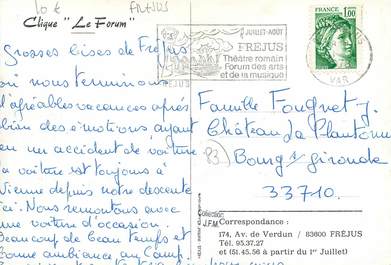 10 € FREJUS
Clique "Le Forum"
Grosses bises de Fréjus
où nous terminons
d'agréables vacances après
bien des émotions ayant
eu un accident de voiture
La voiture est toujours à
Vienne depuis notre descente
ici. Nous remontons avec
une voiture d'occasion.
Beaucoup de beau temps et
bonne ambiance au Camp.
JUILLET-AOUT
FREJUS
Théâtre romain
Forum des arts
et de la musique
FREJUS
VAR
FRANCE
1,00
Famille Fougnet J.
Château La Plantome
Bourg s/ Gironde
33710.
83
Collection
JFM
Correspondance :
174, Av. de Verdun / 83600 FRÉJUS
Tél. 95.37.27
et (51.45.56 à partir du 1er Juillet)